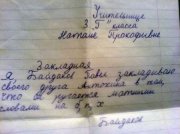 Учительнице
3 Б класса
Наталье Прокофьевне
Закладная
Я, Байдаков Вова, закладываю
своего друга Антохина в том,
что он ругается матными
словами на б, п, х
Байдаков